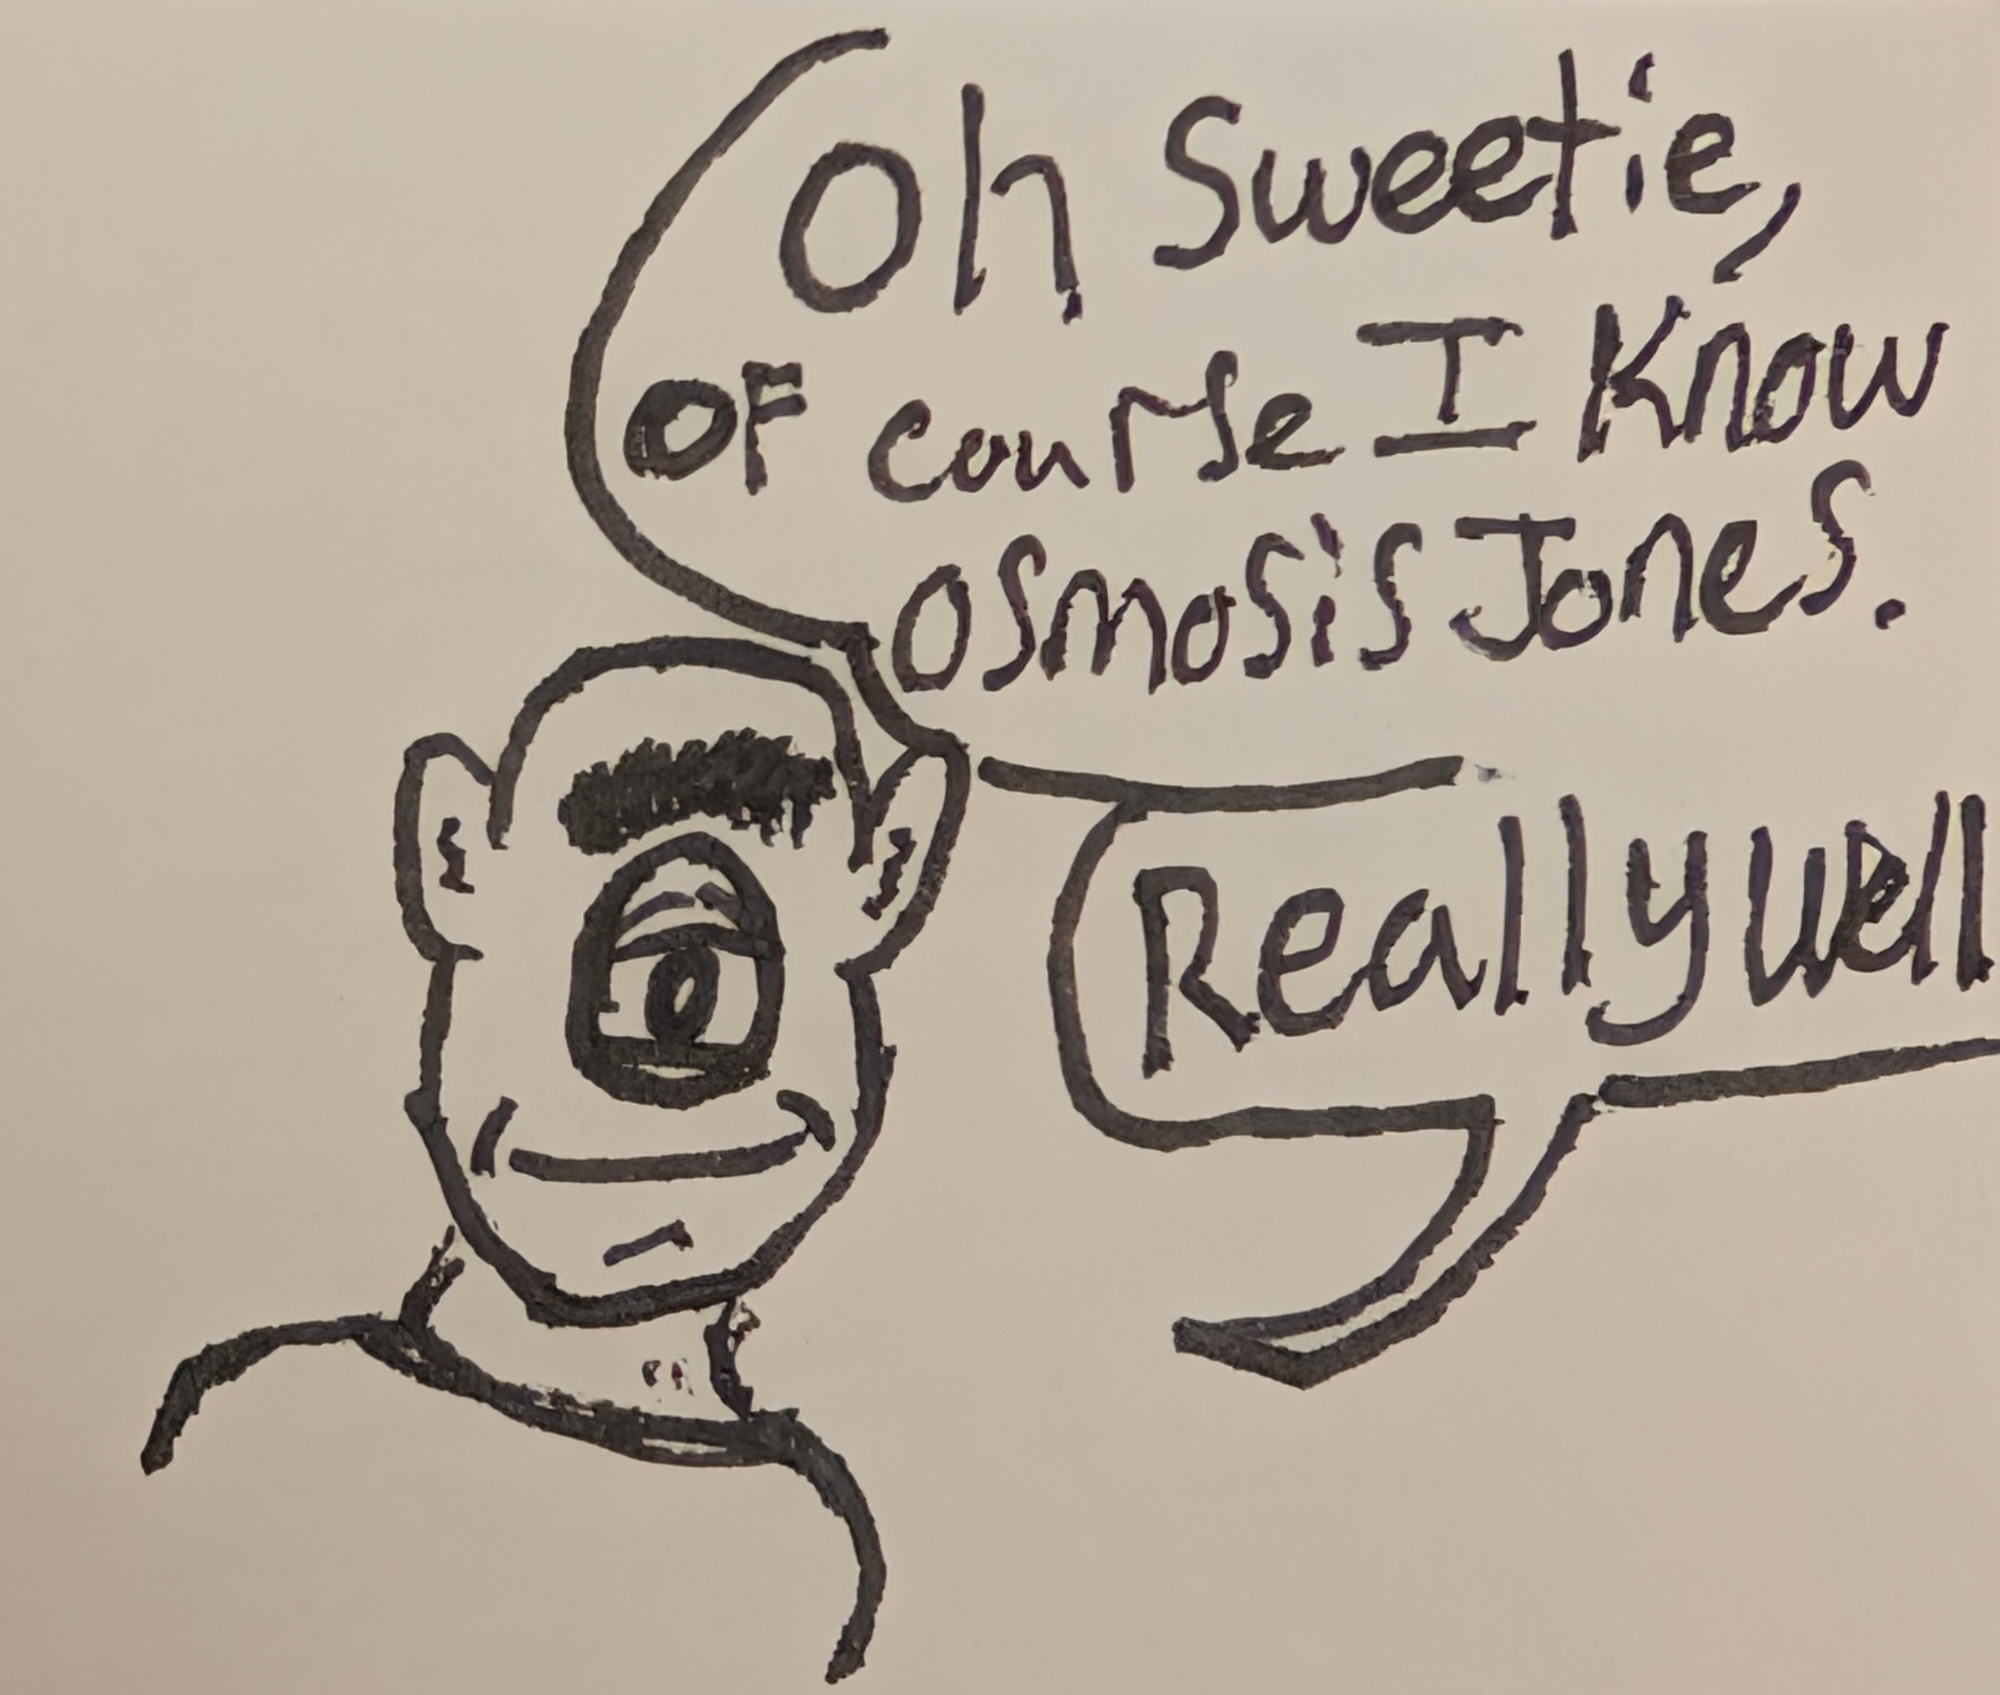 Oh Sweetie,
OF course I Know
Osmosis Jones.
Really well